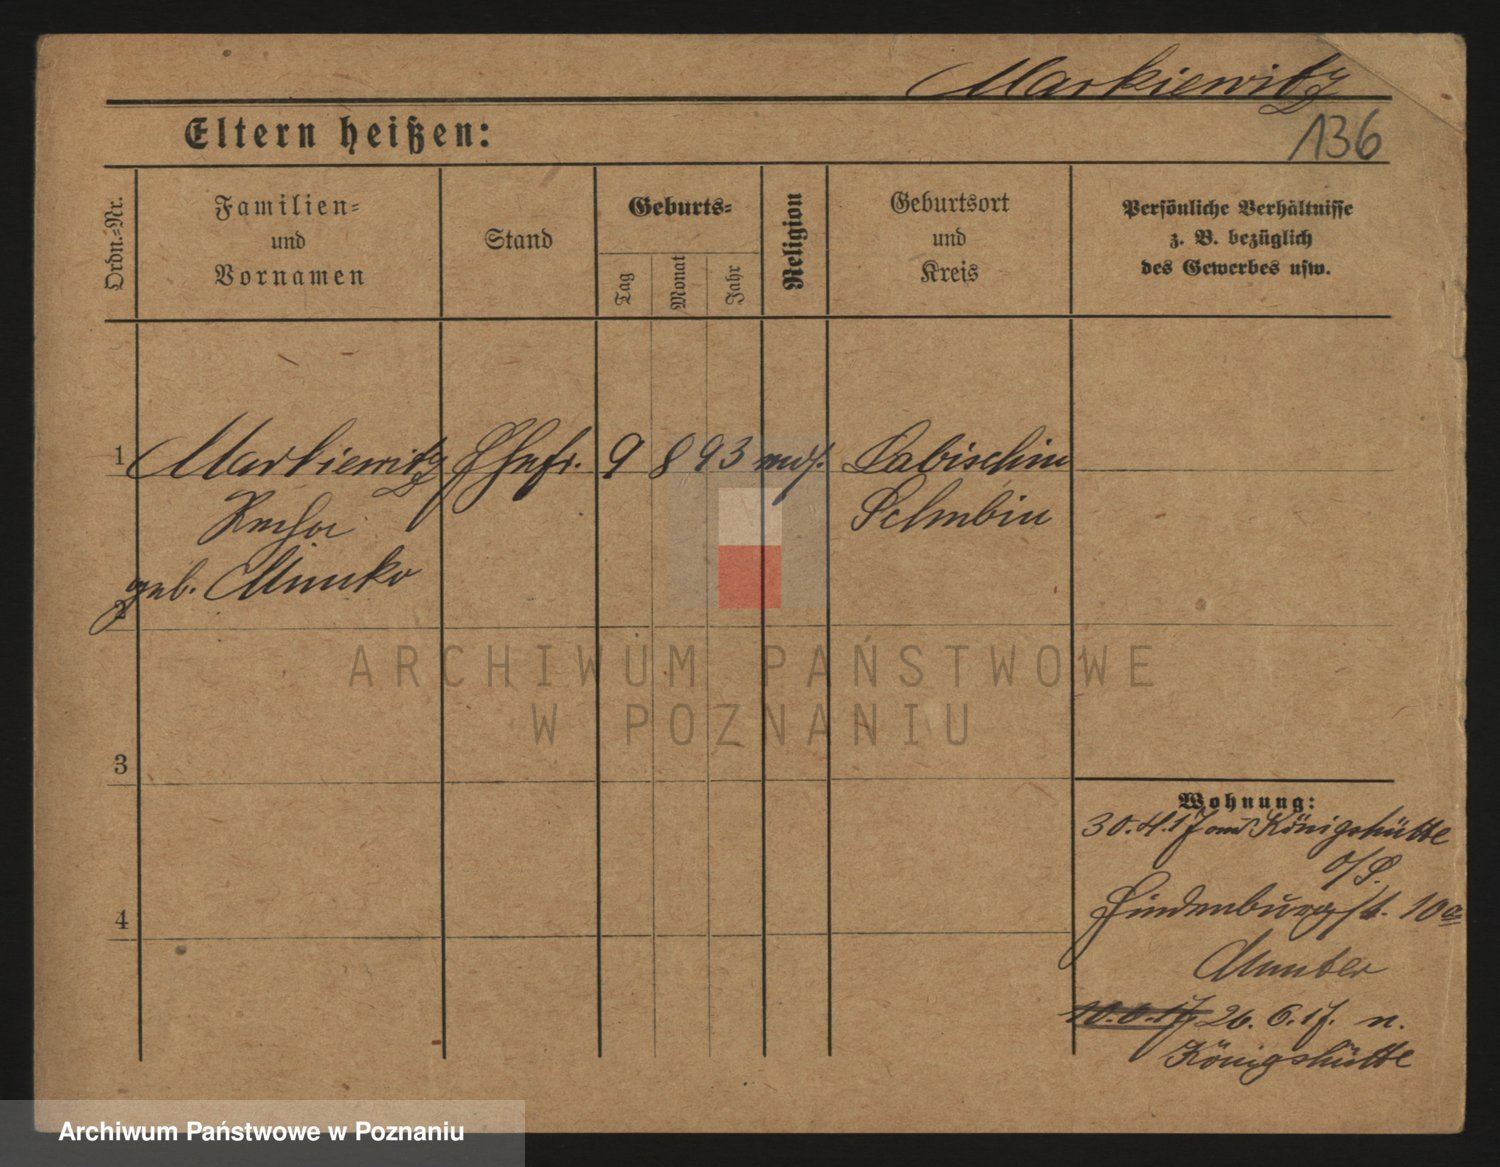 Markiewitz
136
Eltern heißen:
Ordn.-Nr.
Familien-
und
Vornamen
Stand
Geburts-
Tag
Monat
Jahr
Religion
Geburtsort
und
Kreis
Persönliche Verhältnisse
z. B. bezüglich
des Gewerbes usw.
1 Markiewitz Ehefr. 9 8 93 mos. Labischin
Recha Schubin
geb. Mimko
2
3
4
Wohnung:
30.4.17 aus Königshütte
o/S.
Hindenburgst. 10a
Munter
10.6.17 26.6.17. n.
Königshütte
ARCHIWUM PAŃSTWOWE
W POZNANIU
Archiwum Państwowe w Poznaniu